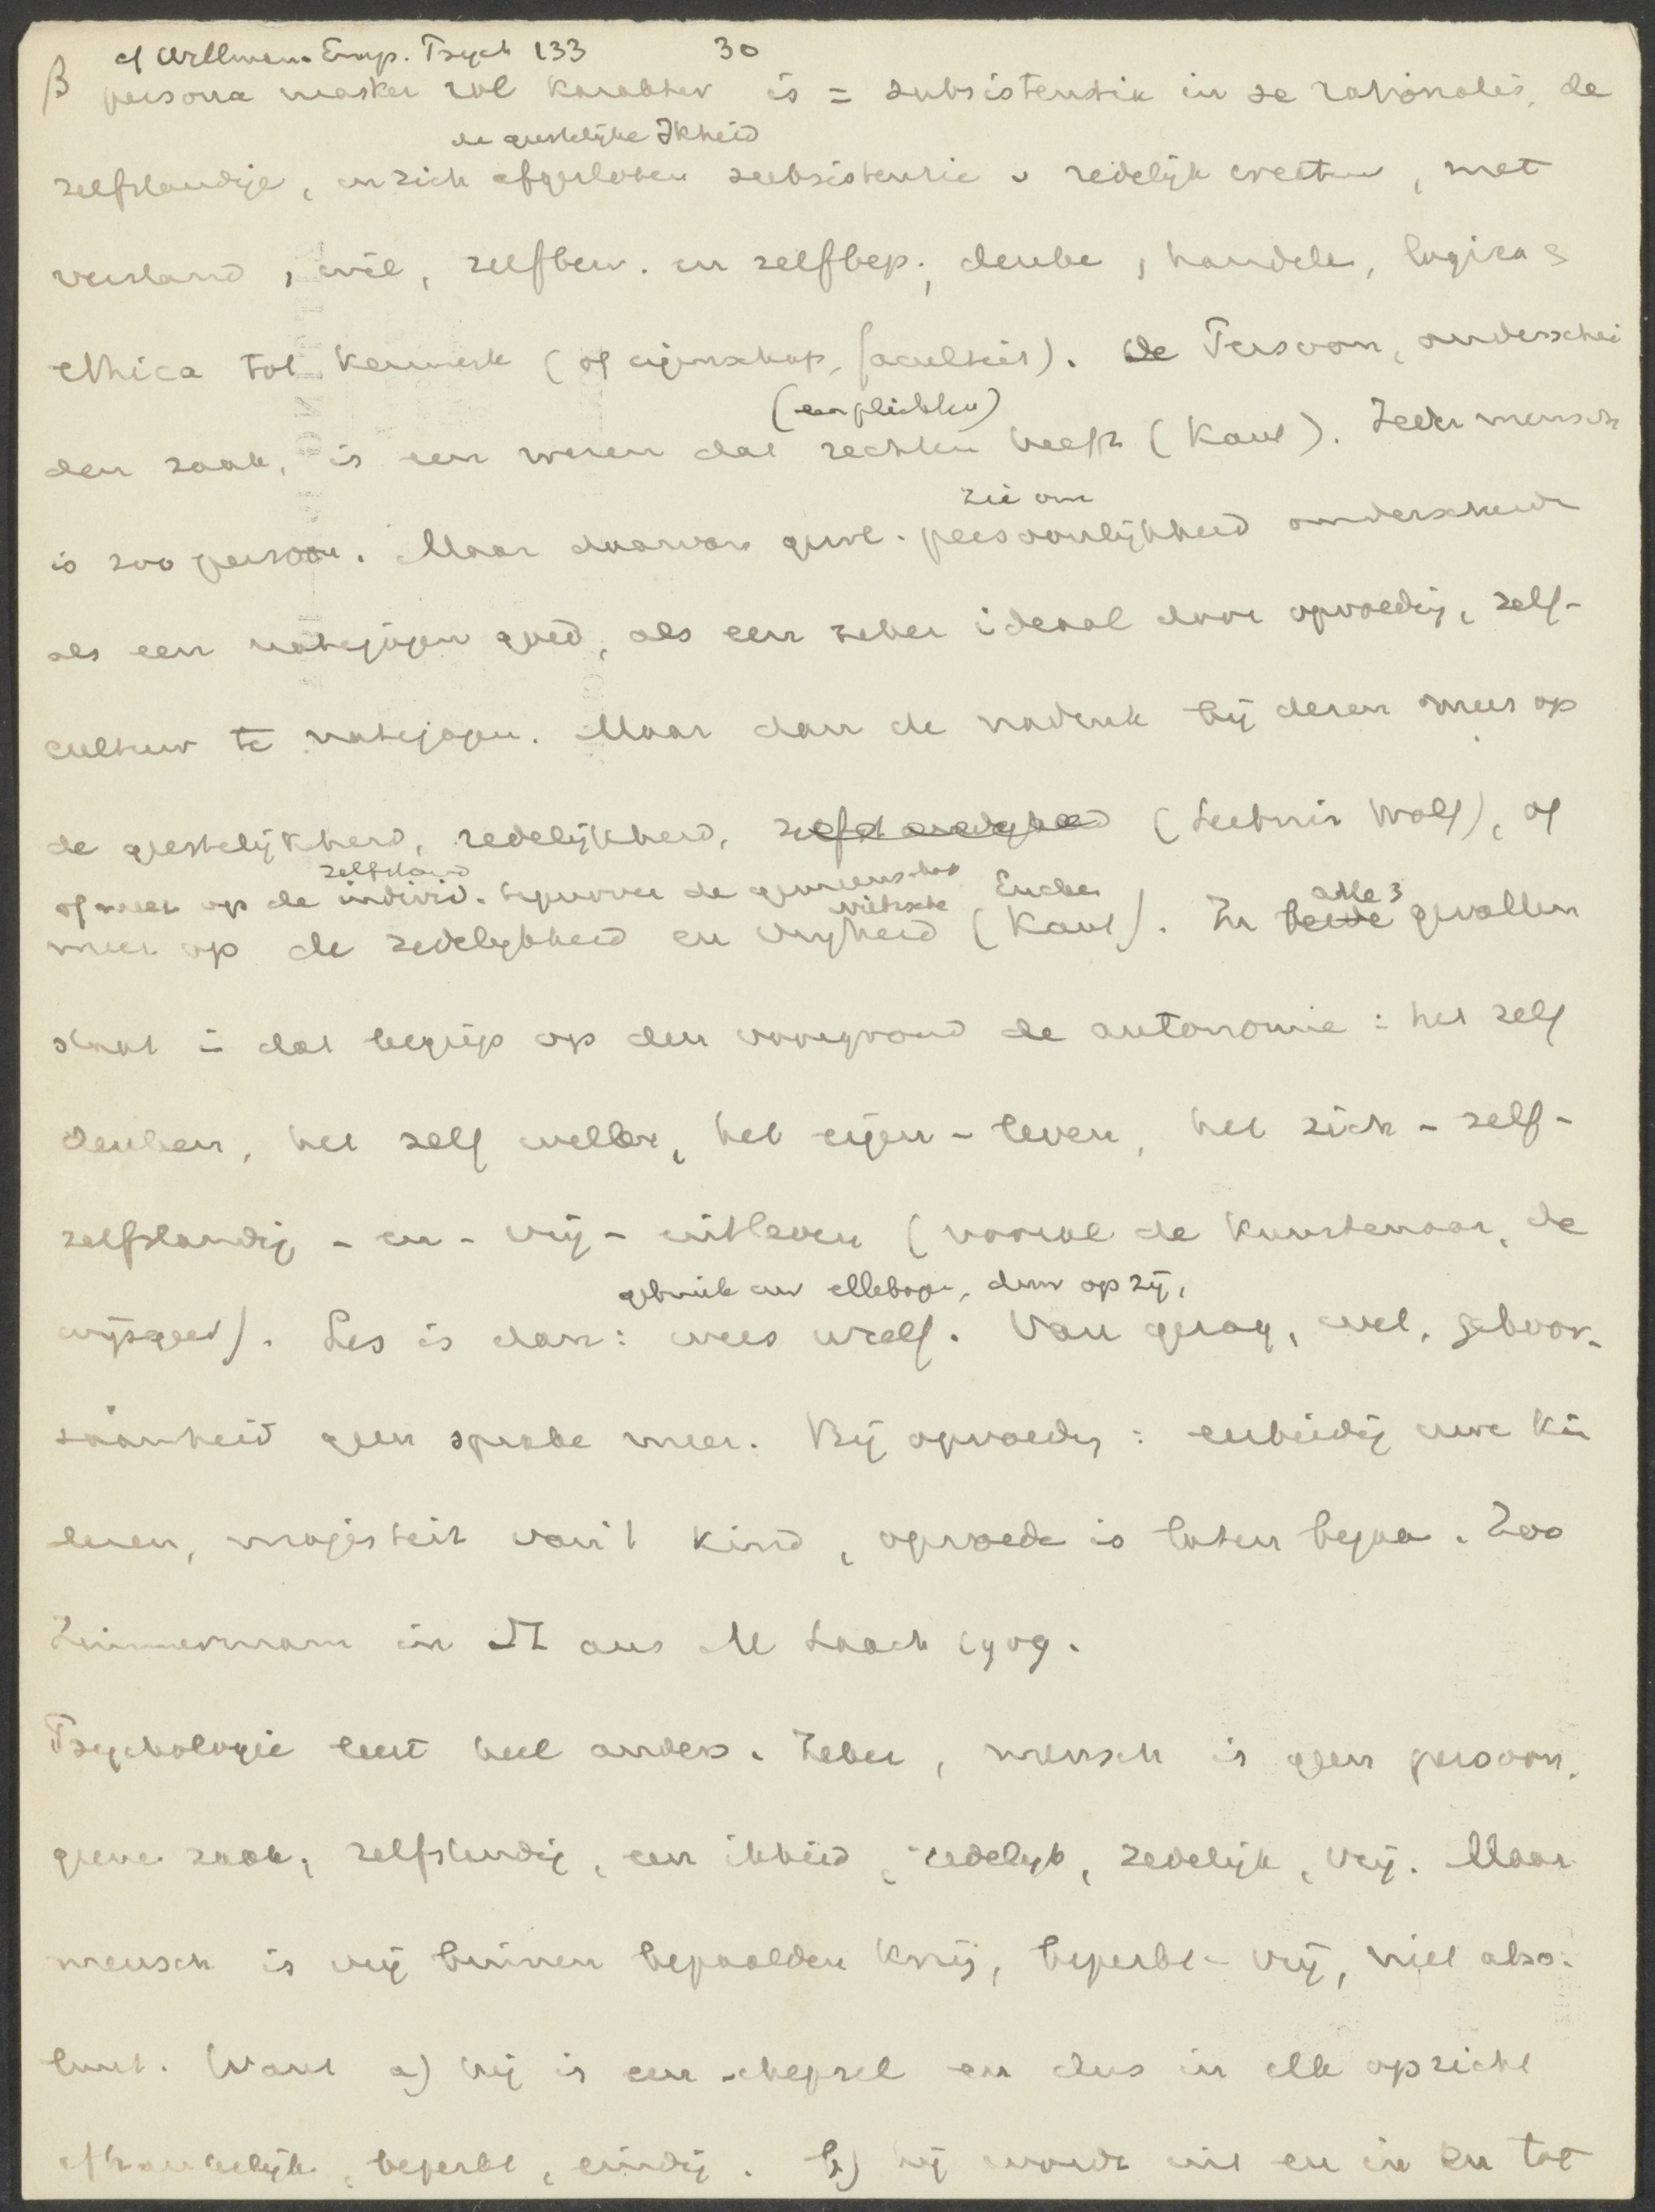 cf Willmann. Emp. Psych 133 30
β persona masker rol karakter is = subsistentia in se rationalis, de
de geestelijke Ikheid
zelfstandige, in zich afgesloten subsistentie v redelijk creatuur, met
verstand, wil, zelfbew. en zelfbep., denke, handele, logica &
ethica tot kenmerk (of eigenschap, faculteit). De Persoon, onderschei
(en plichten)
den zaak, is een wezen dat rechten heeft (Kant). Ieder mensch
is zoo persoon. Maar daarvan gew.
zie om
persoonlijkheid onderscheide
als een natejagen goed, als een zeker ideaal door opvoedig, zelf-
cultuur te natejagen. Maar dan de nadruk bij dezen meer op
de geestelijkheid, redelijkheid, zelfstandigheid (Leibniz Wolf), of
zelfstand
of meer op de individ. tegenover de gemeenschap
Nietzsche Eucken alle 3
meer op de zedelijkheid en vrijheid (Kant). In beide gevallen
staat in dat begrip op den voorgrond de autonomie: het zelf
denken, het zelf willen, het eigen-leven, het zich-zelf-
zelfstandig-en-vrij-uitleven (vooral de kunstenaar, de
gebruik uw ellebogen, durw op zij,
wijsgeer). Les is dan: wees uzelf. Van gezag, wet, gehoor-
zaamheid geen sprake meer. Bij opvoedig: eerbiedig uwe kin
deren, majesteit van 't kind, opvoede is laten begaa. Zoo
Zimmermann in St aus M Laach 1909.
Psychologie leert heel anders. Zeker, mensch is geen persoon,
geene zaak, zelfstandig, een ikheid, redelijk, zedelijk, vrij. Maar
mensch is vrij binnen bepaalden kring, beperkt-vrij, niet abso-
luut. Want a) hij is een schepsel en dus in elk opzicht
afhankelijk, beperkt, eindig. b) hij wordt uit en in en tot